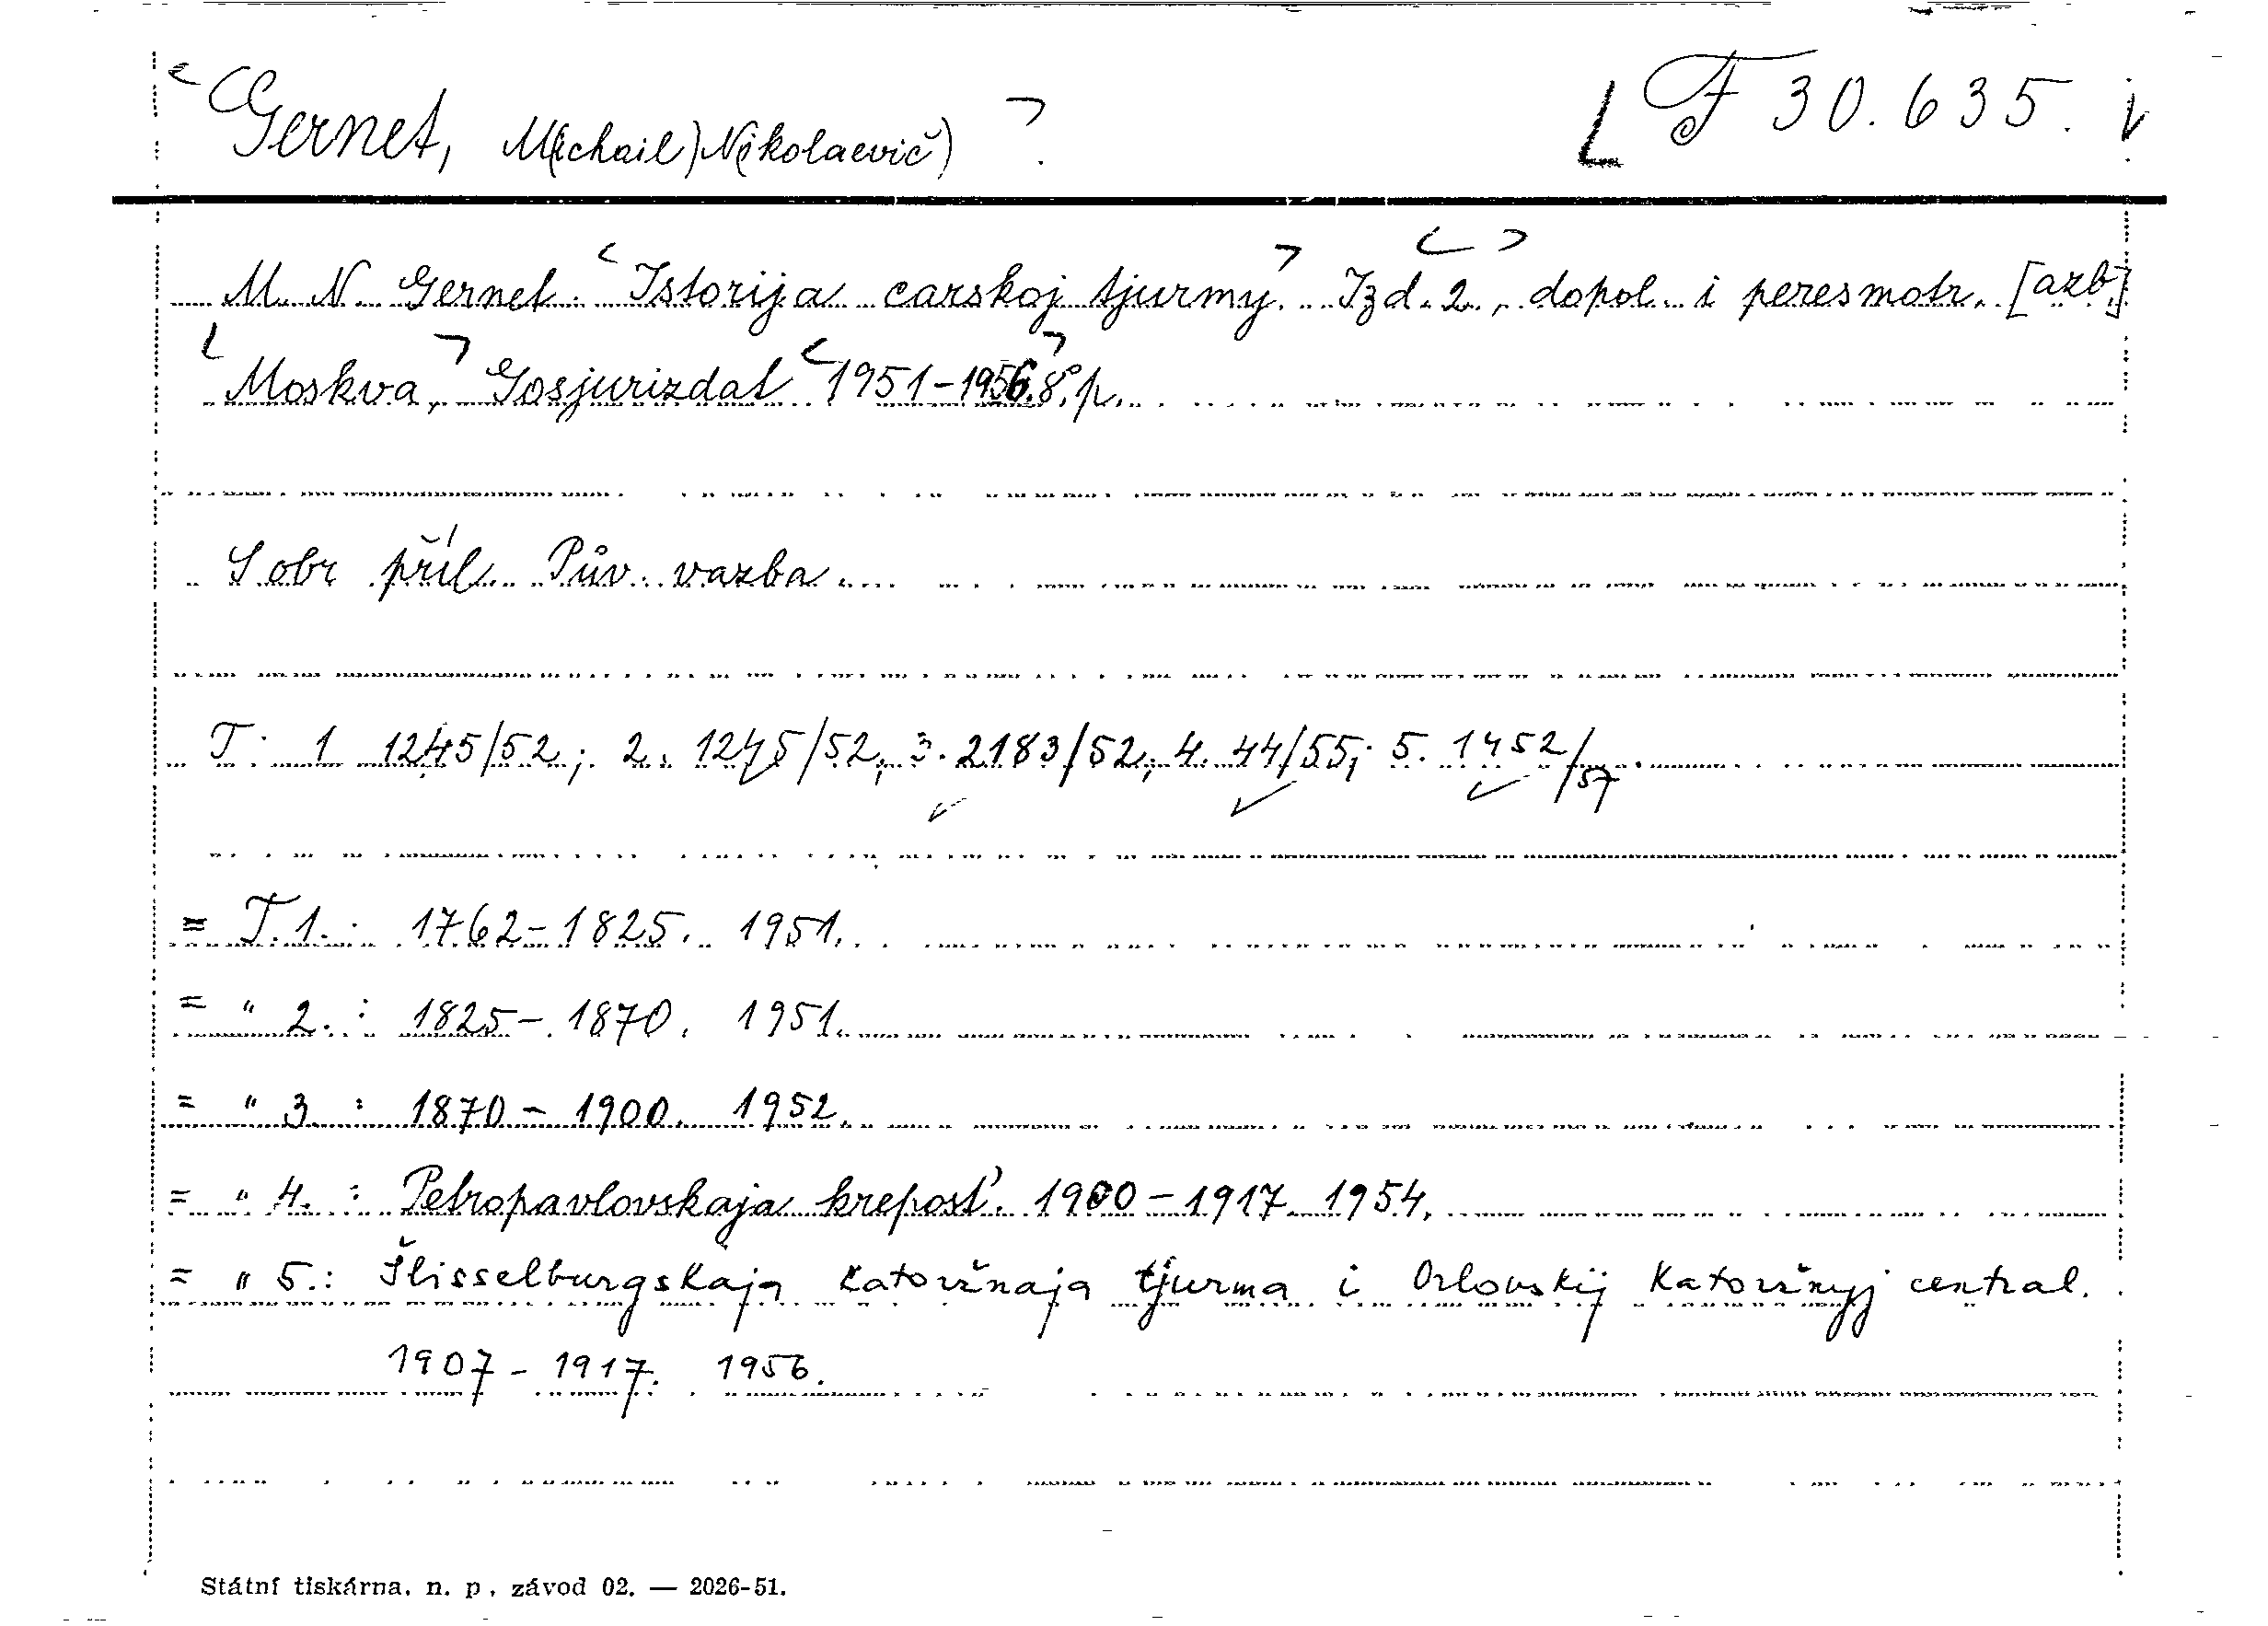 Gernet, M(ichail) N(ikolaevič) F 30.635.
M. N. Gernet: Istorija carskoj tjurmy. Izd. 2., dopol. i peresmotr. [azb.]
Moskva, Gosjurizdat 1951-1956. 8°. p.
S obr příl. Pův. vazba.
T. 1 1245/52; 2. 1245/52; 3. 2183/52; 4. 44/55; 5. 1452/57.
= T. 1. : 1762-1825. 1951.
= " 2. : 1825-1870. 1951.
= " 3 : 1870-1900. 1952.
= " 4. : Petropavlovskaja krepost'. 1900-1917. 1954.
= " 5.: Šlisselburgskaja katoržnaja tjurma i Orlovskij katoržnyj central.
1907-1917. 1956.
Státní tiskárna, n. p., závod 02. — 2026-51.